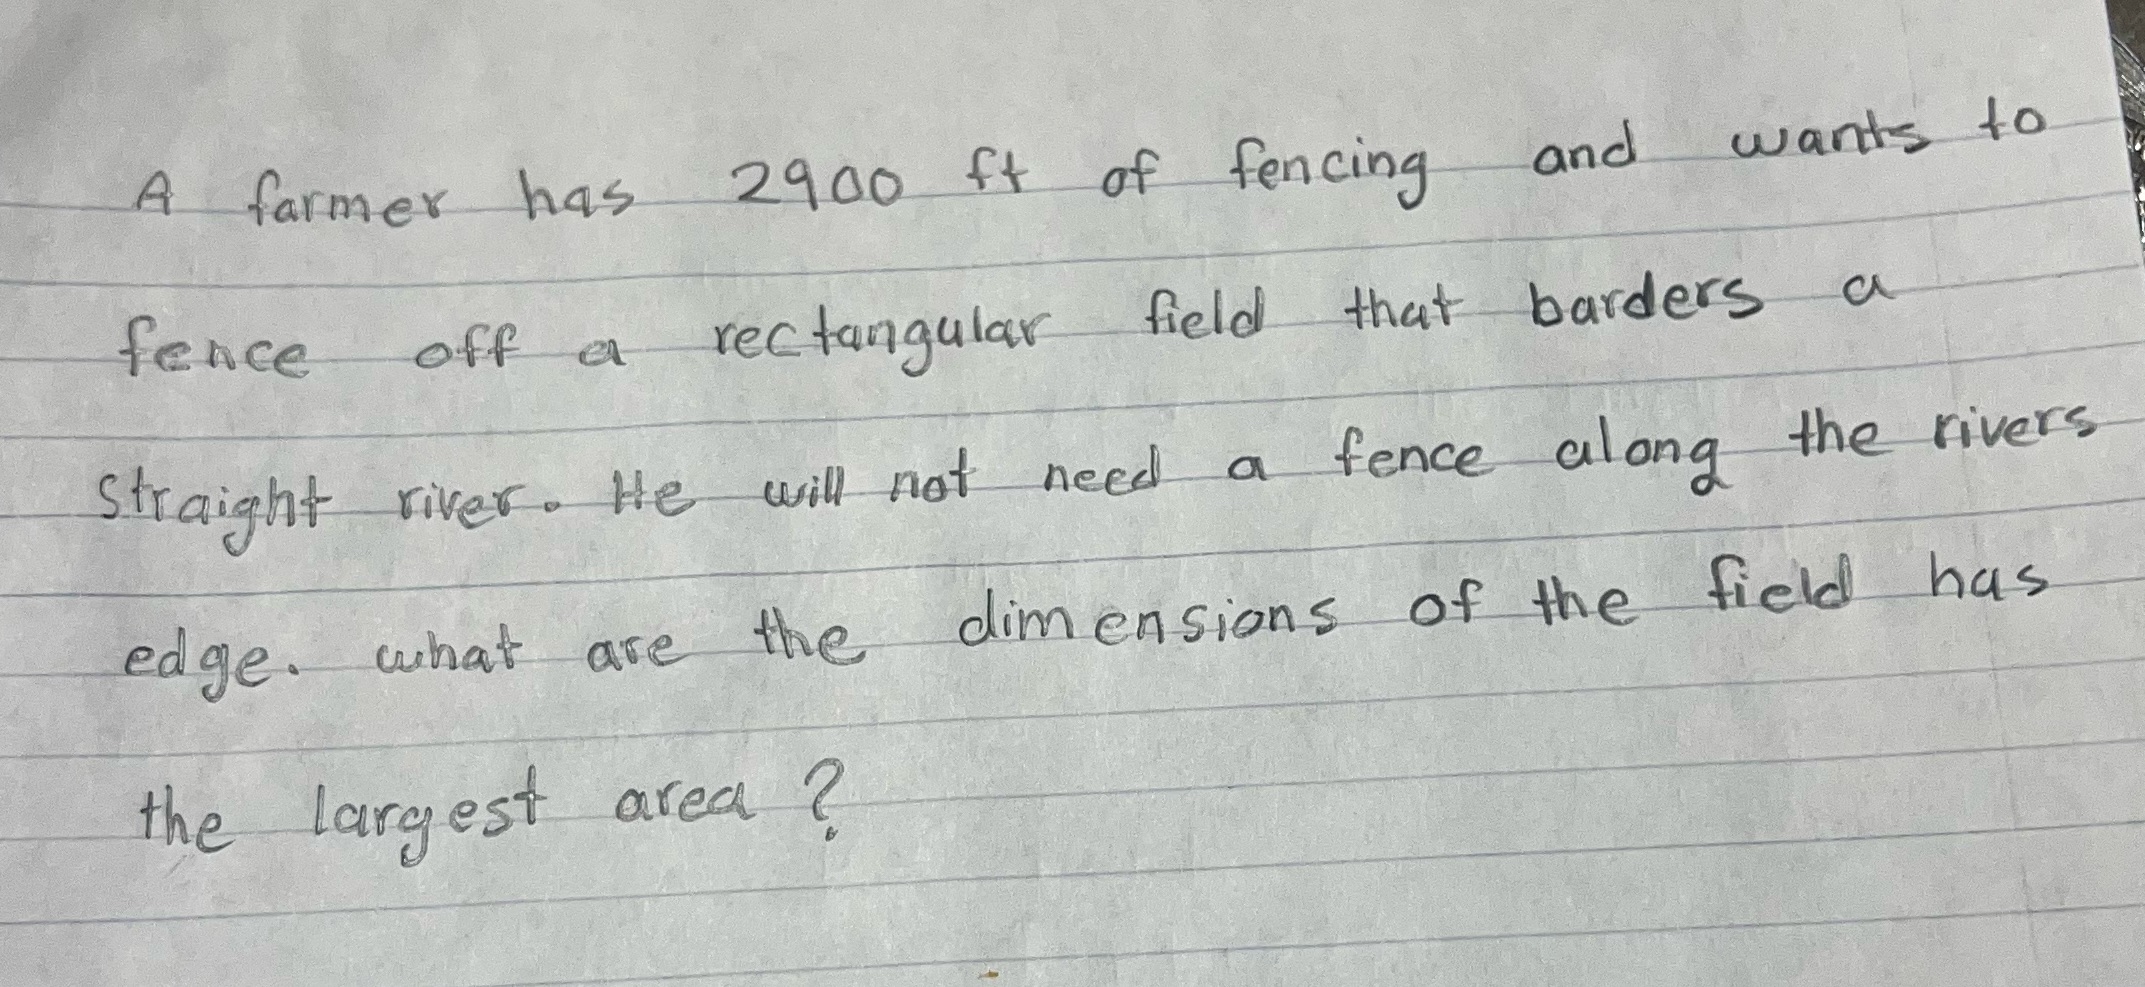 A farmer has 2900 ft of fencing and wants to
fence off a rectangular field that barders a
straight river. He will not need a fence along the rivers
edge. what are the dimensions of the field has
the largest area ?